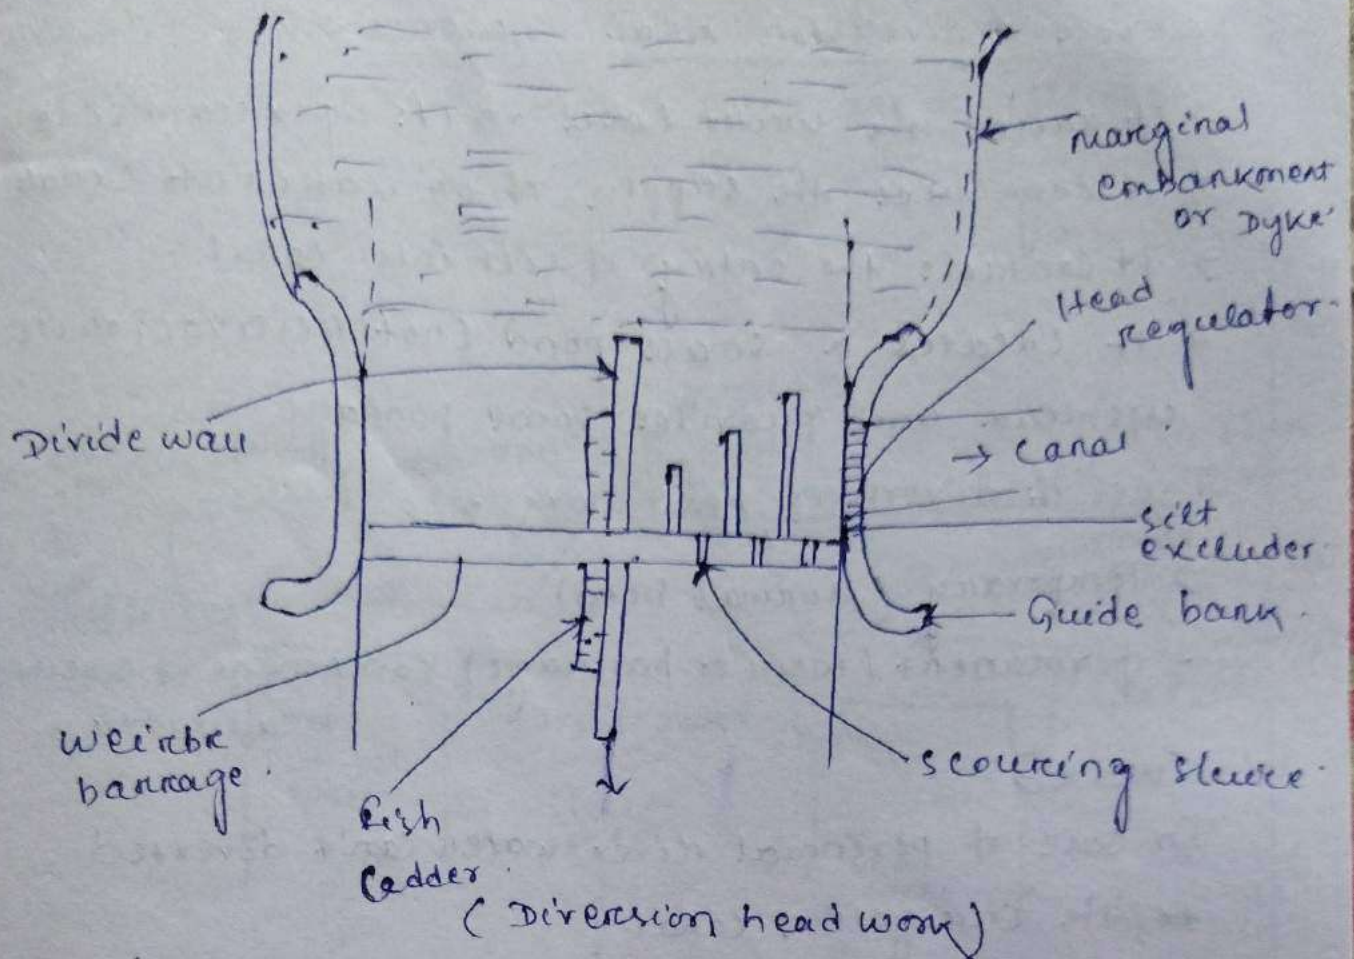 marginal
embankment
or Dyke
Head
regulator
Divide wall
→ canal
silt
excluder
Guide bank
weir or
barrage
scouring sluice
Fish
Ladder
(Diversion head work)